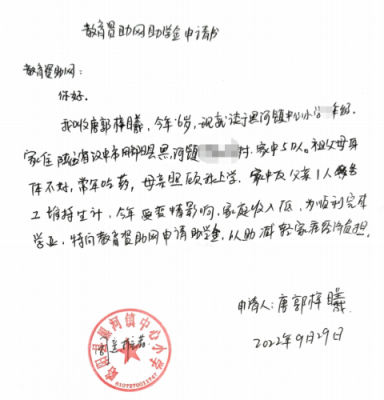 教育资助网助学金申请书
教育资助网：
你好。
我叫唐郭梓曦，今年6岁，现就读于黑河镇中心小 年级
家住陕西省汉中市略阳县黑河镇 村。家中5口人。祖父母身
体不好，常年吃药，母亲照顾我上学，家中仅父亲1人务
工维持生计，今年受疫情影响，家庭收入低，为顺利完成
学业，特向教育资助网申请助学金，以助减轻家庭经济负担。
申请人：唐郭梓曦
2022年9月29日
略阳县黑河镇中心小学
同意推荐
6107270011747